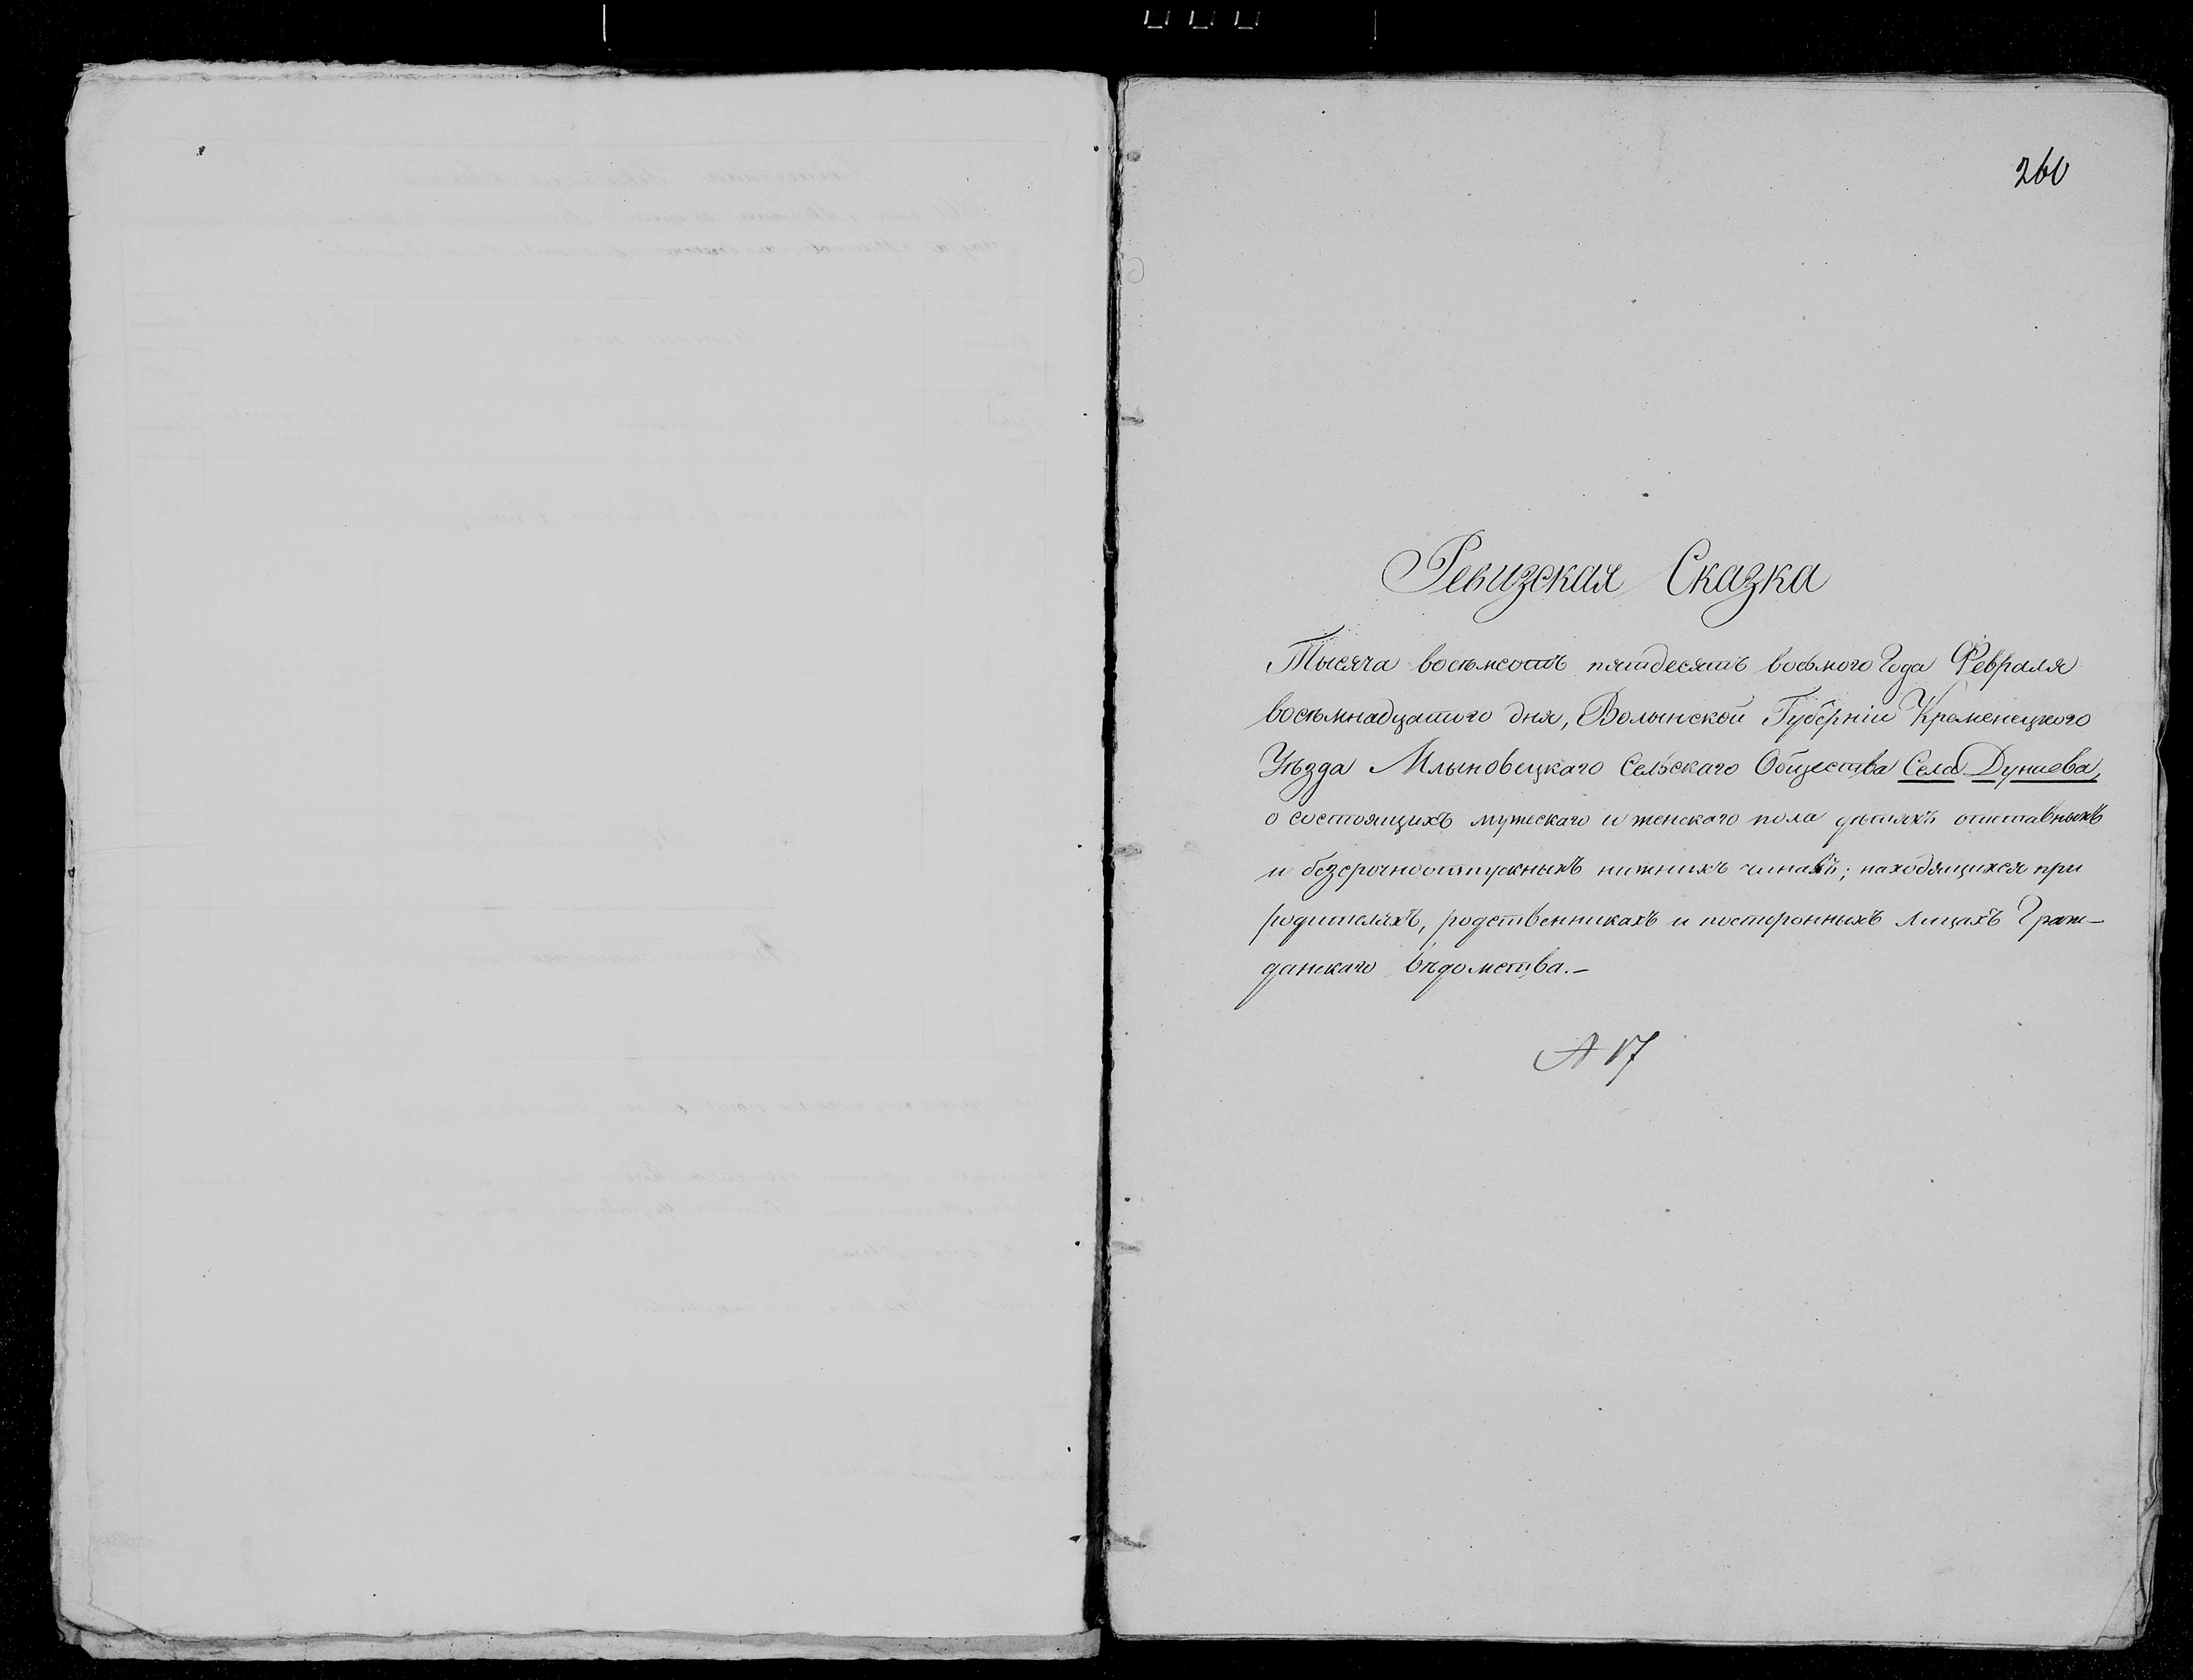 260
Ревизская Сказка
Тысяча восемсотъ пятдесятъ восьмого Года Февраля
восемнадцатого дня, Волынской Губерніи Кременецкого
Уѣзда Млыновецкаго Сельскаго Общества Села Дунаева,
о состоящихъ мужескаго и женскаго пола дѣтяхъ отставныхъ
и безсрочноотпускныхъ нижнихъ чиновъ; находящихся при
родителяхъ, родственникахъ и посторонныхъ лицахъ Граж-
данскаго вѣдомства.-
№ 17